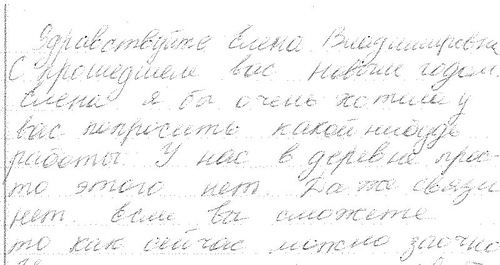 Здравствуйте Елена Владимировна
С прошедшем вас новым годом.
Елена я бы очень хотел у
вас попросить какой нибудь
работы. У нас в деревне прос-
то этого нет. Даже связи
нет. Если вы сможете
то как сейчас можно заочно